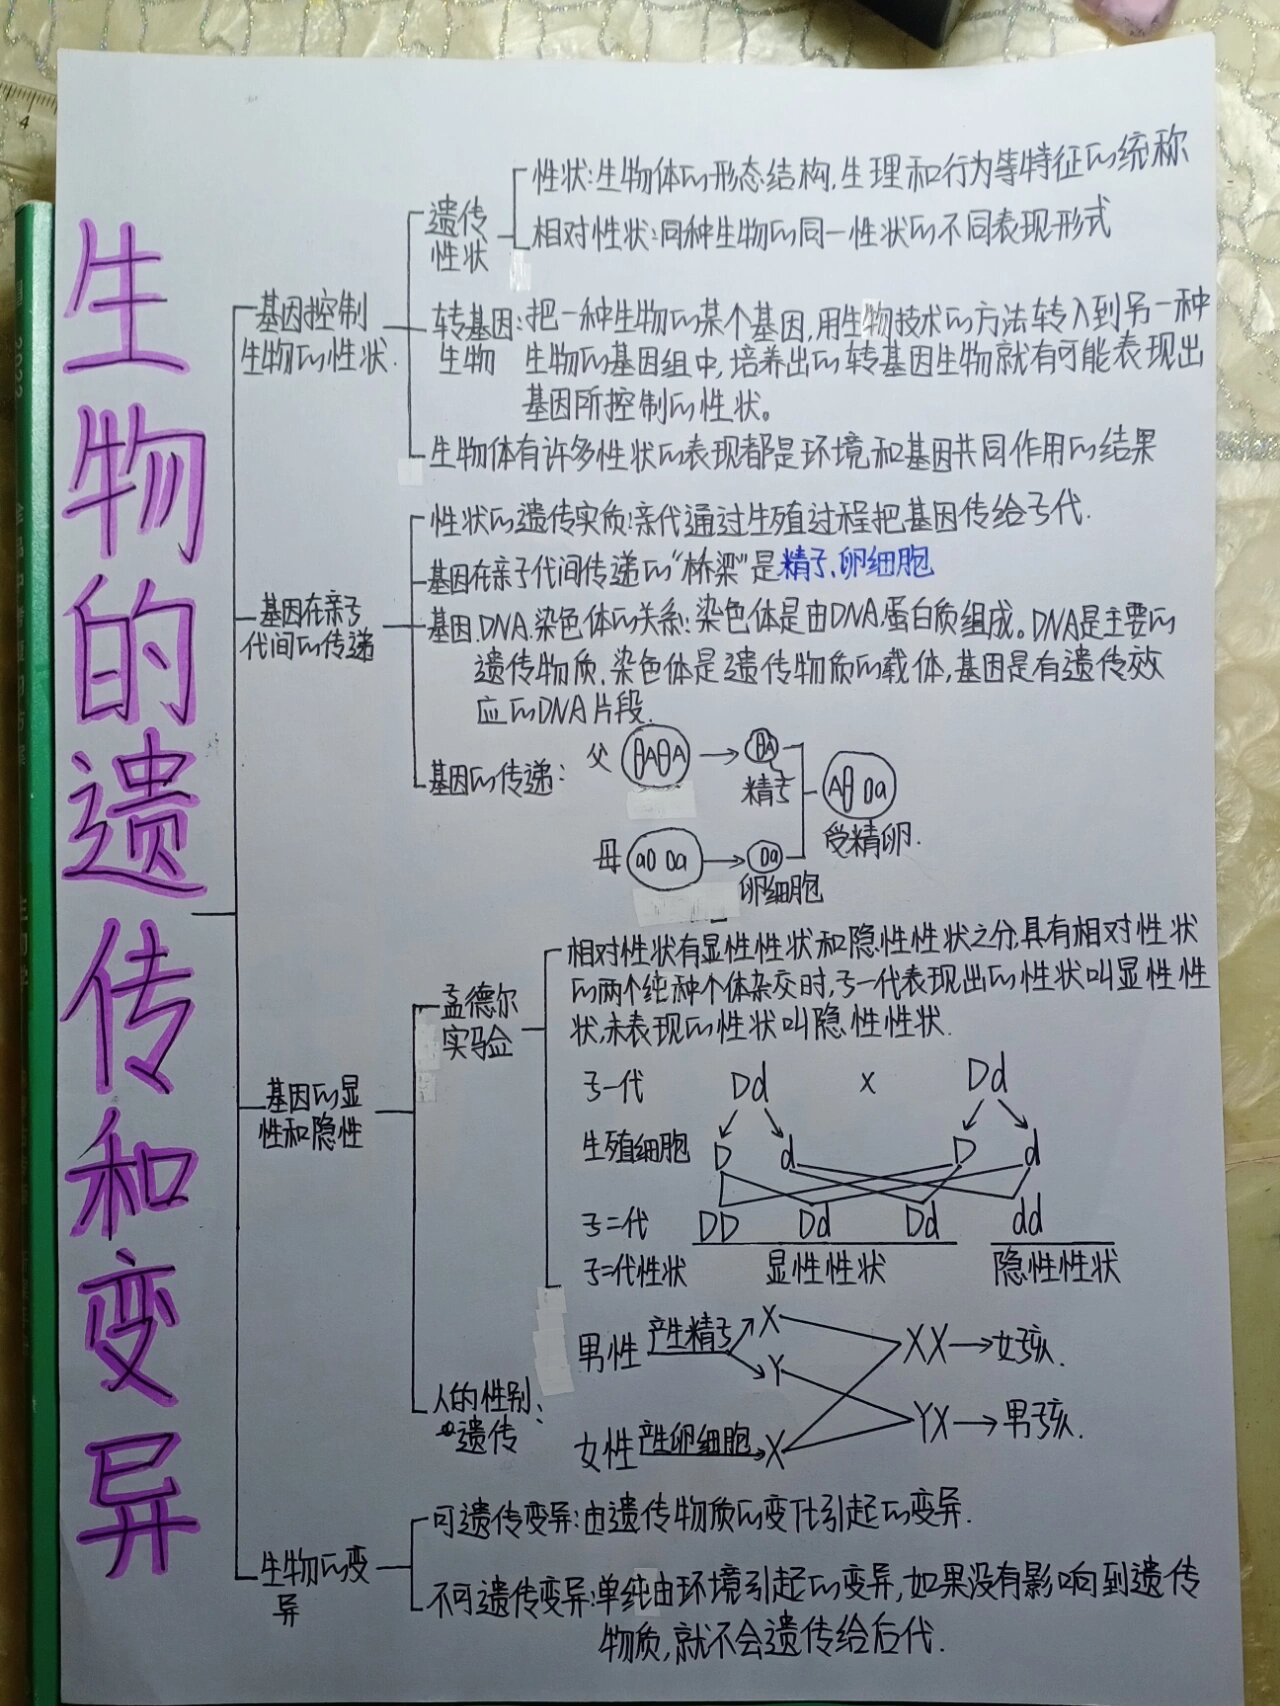 生物的遗传和变异
基因控制
生物的性状.
遗传
性状
性状:生物体的形态结构,生理和行为等特征的统称
相对性状:同种生物的同一性状的不同表现形式
转基因:把一种生物的某个基因,用生物技术的方法转入到另一种
生物 生物的基因组中,培养出的转基因生物就有可能表现出
基因所控制的性状。
生物体有许多性状的表现都是环境和基因共同作用的结果
基因在亲子
代间的传递
性状的遗传实质:亲代通过生殖过程把基因传给子代.
基因在亲子代间传递的“桥梁”是精子、卵细胞
基因.DNA.染色体的关系:染色体是由DNA.蛋白质组成。DNA是主要的
遗传物质.染色体是遗传物质的载体,基因是有遗传效
应的DNA片段.
基因的传递:
父 A A A
精子
A a
受精卵.
母 a a a
卵细胞
基因的显
性和隐性
孟德尔
实验
相对性状有显性性状和隐性性状之分,具有相对性状
的两个纯种个体杂交时,子一代表现出的性状叫显性性
状,未表现的性状叫隐性性状.
子一代 Dd x Dd
生殖细胞 D d D d
子二代 DD Dd Dd dd
子二代性状 显性性状 隐性性状
人的性别:
遗传
男性 产生精子 X
Y
女性 产生卵细胞 X
XX 女孩.
YX 男孩.
生物的变
异
可遗传变异:由遗传物质的变化引起的变异.
不可遗传变异:单纯由环境引起的变异,如果没有影响到遗传
物质,就不会遗传给后代.
4
2023